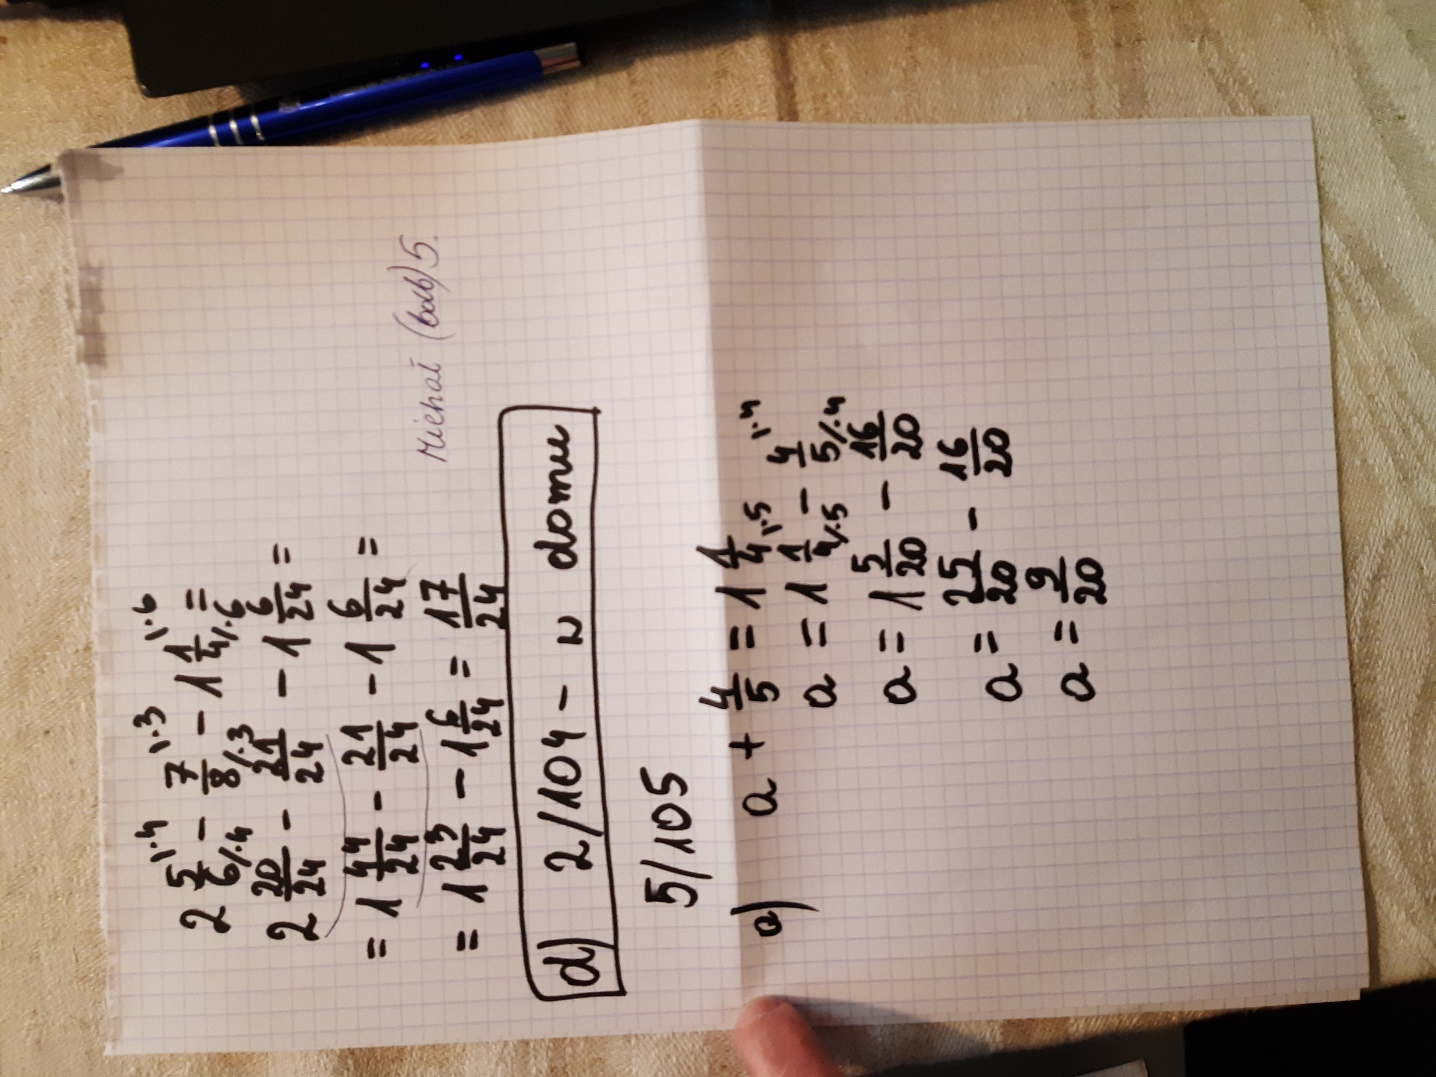 2 5/6 /·4 - 7/8 /·3 - 1 1/4 /·6 =
2 20/24 - 21/24 - 1 6/24 =
= 1 44/24 - 21/24 - 1 6/24 =
= 1 23/24 - 1 6/24 = 17/24
d) 2/104 - w domu
5/105
a) a + 4/5 = 1 1/4
a = 1 1/4 /·5 - 4/5 /·4
a = 1 5/20 - 16/20
a = 25/20 - 16/20
a = 9/20